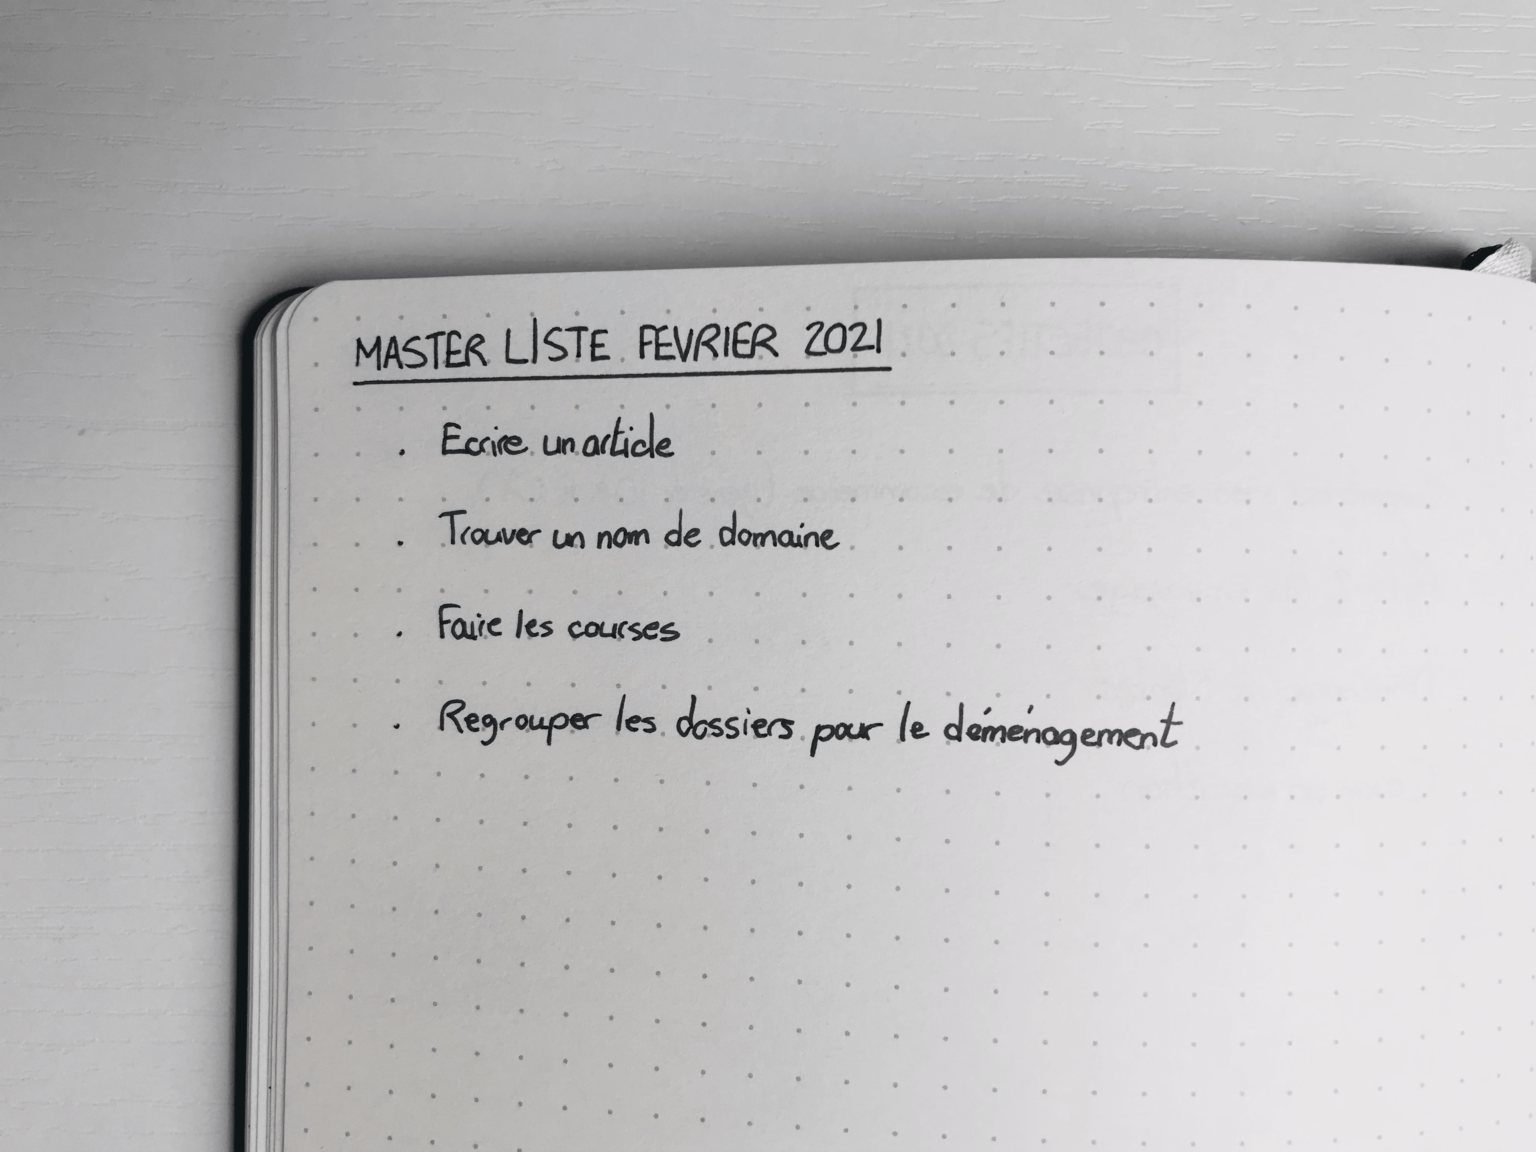 MASTER LISTE FEVRIER 2021
. Ecrire un article
. Trouver un nom de domaine
. Faire les courses
. Regrouper les dossiers pour le déménagement